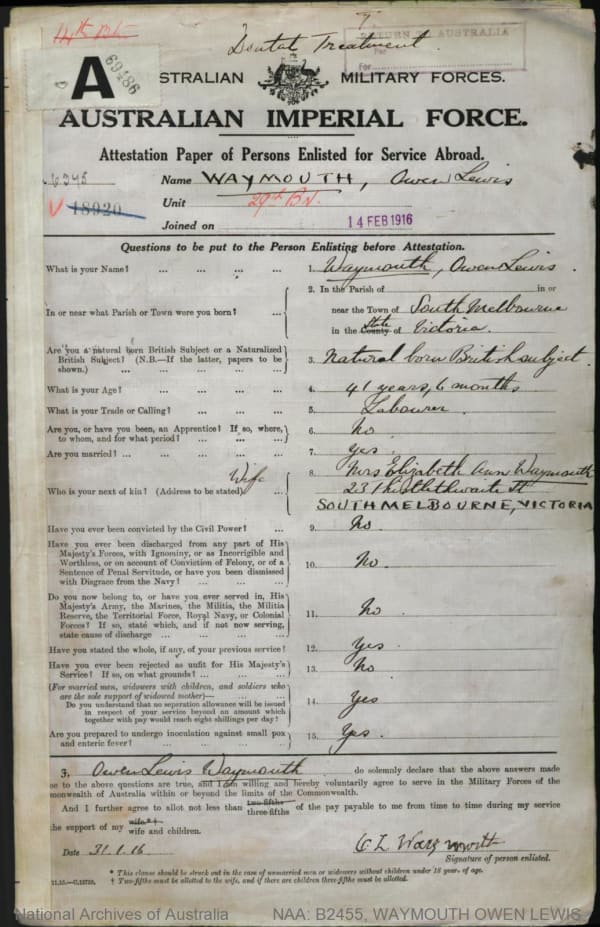 14th Bn
Dental Treatment
RETURN TO AUSTRALIA
For
A
69486
AUSTRALIAN MILITARY FORCES.
AUSTRALIAN IMPERIAL FORCE.
Attestation Paper of Persons Enlisted for Service Abroad.
6345
Name WAYMOUTH, Owen Lewis
18920
Unit 29th BN.
Joined on 14 FEB 1916
Questions to be put to the Person Enlisting before Attestation.
What is your Name? ... ... ... ... 1. Waymouth, Owen Lewis.
2. In the Parish of in or
In or near what Parish or Town were you born? ... near the Town of South Melbourne
in the County State of Victoria.
Are you a natural born British Subject or a Naturalized
British Subject? (N.B.—If the latter, papers to be
shown.) ... ... ... ... 3. Natural born British subject.
What is your Age? ... ... ... ... 4. 41 years, 6 months
What is your Trade or Calling? ... ... ... 5. Labourer.
Are you, or have you been, an Apprentice? If so, where,
to whom, and for what period? ... ... ... 6. No
Are you married? ... ... ... ... 7. Yes.
Who is your next of kin? (Address to be stated) Wife 8. Mrs Elizabeth Ann Waymouth
23 Thistlethwaite St
SOUTH MELBOURNE, VICTORIA
Have you ever been convicted by the Civil Power? ... 9. No.
Have you ever been discharged from any part of His
Majesty's Forces, with Ignominy, or as Incorrigible and
Worthless, or on account of Conviction of Felony, or of a
Sentence of Penal Servitude, or have you been dismissed
with Disgrace from the Navy? ... ... 10. No.
Do you now belong to, or have you ever served in, His
Majesty's Army, the Marines, the Militia, the Militia
Reserve, the Territorial Force, Royal Navy, or Colonial
Forces? If so, state which, and if not now serving,
state cause of discharge ... ... ... 11. No.
Have you stated the whole, if any, of your previous service? 12. Yes.
Have you ever been rejected as unfit for His Majesty's
Service? If so, on what grounds? ... ... 13. No
(For married men, widowers with children, and soldiers who
are the sole support of widowed mother)—
Do you understand that no separation allowance will be issued
in respect of your service beyond an amount which
together with pay would reach eight shillings per day? 14. Yes
Are you prepared to undergo inoculation against small pox
and enteric fever? ... ... ... 15. Yes.
I, Owen Lewis Waymouth do solemnly declare that the above answers made
me to the above questions are true, and I am willing and hereby voluntarily agree to serve in the Military Forces of the
monwealth of Australia within or beyond the limits of the Commonwealth.
And I further agree to allot not less than two-fifths three-fifths of the pay payable to me from time to time during my service
the support of my wife*† wife and children.
Date 31.1.16 O L Waymouth
Signature of person enlisted.
* This clause should be struck out in the case of unmarried men or widowers without children under 18 years of age.
† Two-fifths must be allotted to the wife, and if there are children three-fifths must be allotted.
National Archives of Australia NAA: B2455, WAYMOUTH OWEN LEWIS